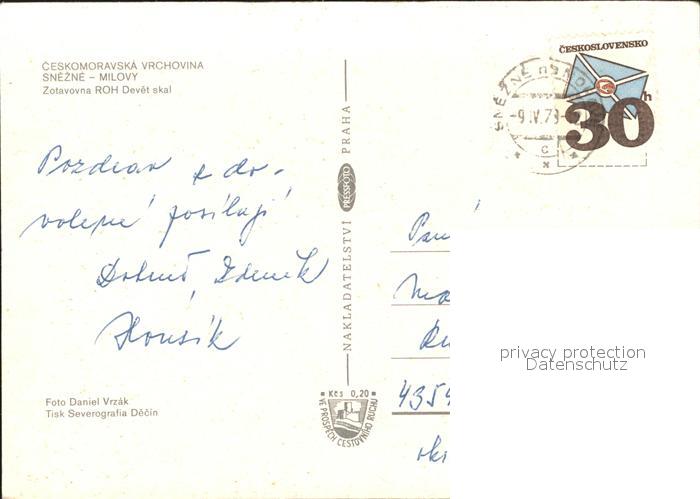 ČESKOMORAVSKÁ VRCHOVINA
SNĚŽNÉ – MILOVY
Zotavovna ROH Devět skal
Pozdrav z do-
volené posílají
Zdeněk
Foto Daniel Vrzák
Tisk Severografia Děčín
NAKLADATELSTVÍ PRESSFOTO PRAHA
Kčs 0,20
VE PROSPĚCH CESTOVNÍHO RUCHU
ČESKOSLOVENSKO
30h
SNĚŽNÉ
C
Pan
4354
okr
privacy protection
Datenschutz